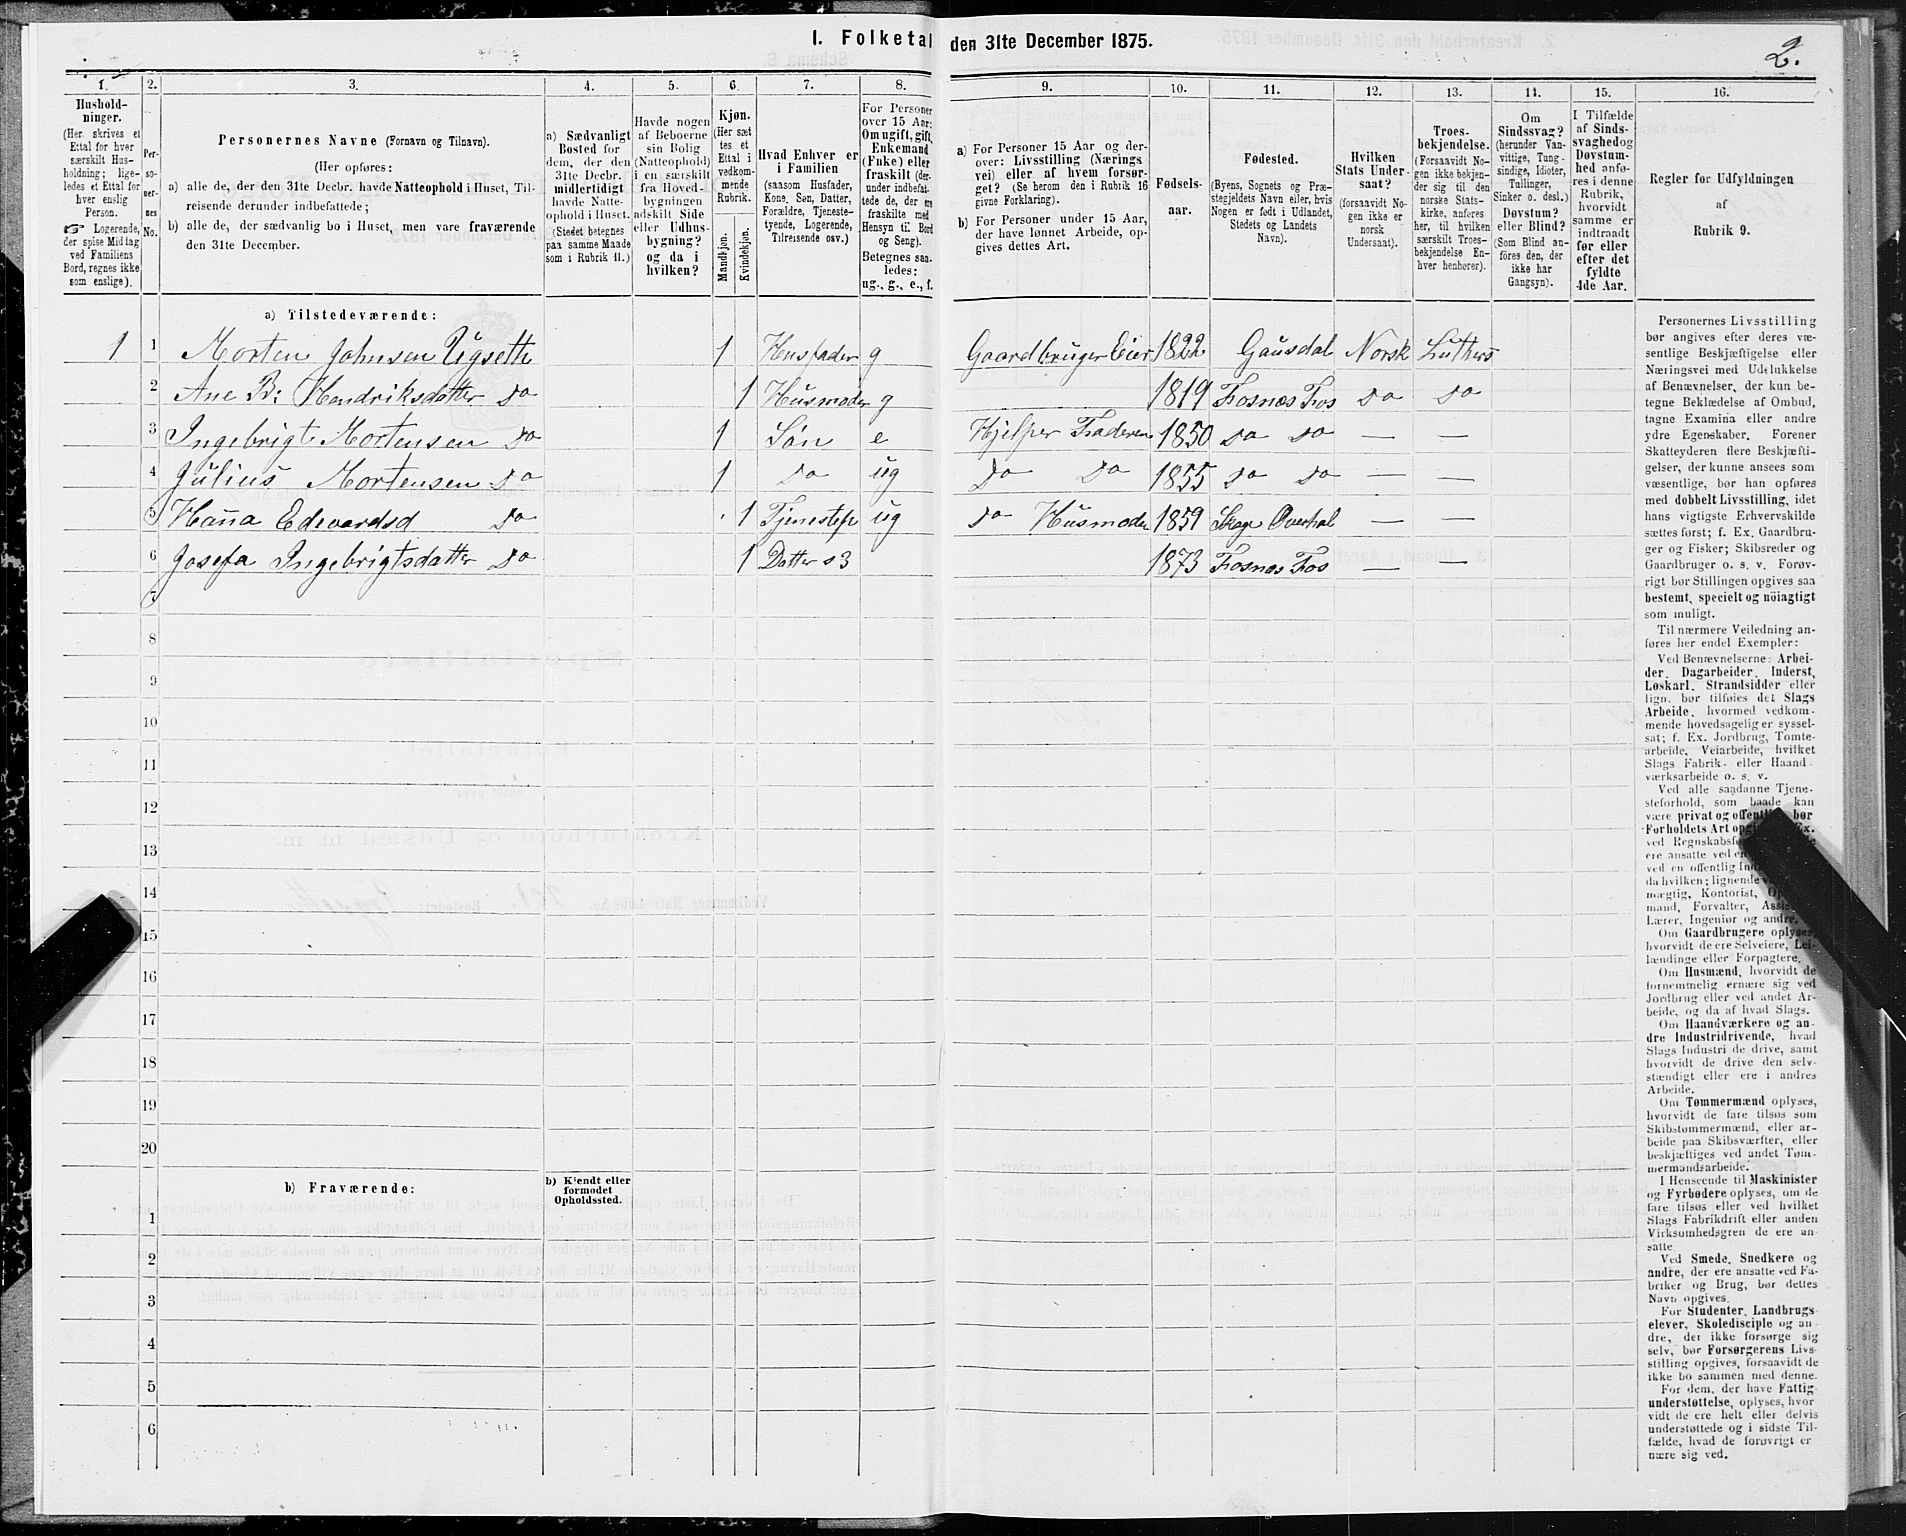 I. Folketal den 31te December 1875.
2.
1.
Hushold-
ninger.
(Her skrives et
Ettal for hver
særskilt Hus-
holdning; lige-
ledes et Ettal for
hver enslig
Person.
☞ Logerende,
der spise Middag
ved Familiens
Bord, regnes ikke
som enslige).
2.
Per-
so-
ner-
nes
No.
3.
Personernes Navne (Fornavn og Tilnavn).
(Her opføres:
a) alle de, der den 31te Decbr. havde Natteophold i Huset, Til-
reisende derunder indbefattede;
b) alle de, der sædvanlig bo i Huset, men vare fraværende
den 31te December.
4.
a) Sædvanligt
Bosted for
dem, der den
31te Decbr.
midlertidigt
havde Natte-
ophold i Huset.
(Stedet betegnes
paa samme Maade
som i Rubrik 11.)
5.
Havde nogen
af Beboerne
sin Bolig
(Natteophold)
i en særskilt
fra Hoved-
bygningen
adskilt Side
eller Udhus-
bygning?
og da i
hvilken?
6.
Kjøn.
(Her sæt
tes et
Ettal i
vedkom-
mende
Rubrik.
Mandkjøn.
Kvindekjøn.
7.
Hvad Enhver er
i Familien
(saasom Husfader,
Kone, Søn, Datter,
Forældre, Tjeneste-
tyende, Logerende,
Tilreisende osv.)
8.
For Personer
over 15 Aar:
Om ugift, gift,
Enkemand
(Enke) eller
fraskilt (der-
under indbefat-
tede de, der ere
fraskilte med
Hensyn til Bord
og Seng).
Betegnes saa-
ledes:
ug., g., e., f.
9.
a) For Personer 15 Aar og der-
over: Livsstilling (Nærings
vei) eller af hvem forsør-
get? (Se herom den i Rubrik 16
givne Forklaring).
b) For Personer under 15 Aar,
der have lønnet Arbeide, op-
gives dettes Art.
10.
Fødsels-
aar.
11.
Fødested.
(Byens, Sognets og Præ-
stegjeldets Navn eller, hvis
Nogen er født i Udlandet,
Stedets og Landets
Navn).
12.
Hvilken
Stats Under-
saat?
(forsaavidt No-
gen ikke er
norsk
Undersaat).
13.
Troes-
bekjendelse.
(Forsaavidt No-
gen ikke bekjen-
der sig til den
norske Stats-
kirke, anføres
her, til hvilken
særskilt Troes-
bekjendelse En-
hver henhører).
14.
Om
Sindssvag?
(herunder Van-
vittige, Tung-
sindige, Idioter,
Tullinger,
Sinker o. desl.)
Døvstum?
eller Blind?
(Som Blind an-
føres den, der
ikke har
Gangsyn).
15.
I Tilfælde
af Sinds-
svaghed og
Døvstum-
hed anfø-
res i denne
Rubrik,
hvorvidt
samme er
indtraadt
før eller
efter det
fyldte
4de Aar.
16.
Regler for Udfyldningen
af
Rubrik 9.
a) Tilstedeværende:
1 1 Morten Johnsen Ugseth 1 Husfader g Gaardbruger Eier 1822 Gausdal Norsk Luthers
2 Ane B: Hendriksdatter Do 1 Husmoder g 1819 Fosnæs Fos Do Do
3 Ingebrigt Mortensen Do 1 Søn e Hjelper Faderen 1850 Do Do — —
4 Julius Mortensen Do 1 Do ug Do Do 1855 Do Do — —
5 Hanna Edevardsd Do 1 Tjenestep ug Do Husmoder 1859 Skage Overhal — —
6 Josefa Ingebrigtsdatter Do 1 Datter s 3 1873 Fosnæs Fos — —
7
8
9
10
11
12
13
14
15
16
17
18
19
20
b) Fraværende:
b) Kjendt eller
formodet
Opholdssted.
1
2
3
4
5
6
Personernes Livsstilling
bør angives efter deres væ-
sentlige Beskjæftigelse eller
Næringsvei med Udelukkelse
af Benævnelser, der kun be-
tegne Beklædelse af Ombud,
tagne Examina eller andre
ydre Egenskaber. Forener
Skatteyderen flere Beskjæfti-
gelser, der kunne ansees som
væsentlige, bør han opføres
med dobbelt Livsstilling, idet
hans vigtigste Erhvervskilde
sættes først; f. Ex. Gaardbru-
ger og Fisker; Skibsreder og
Gaardbruger o. s. v. Forøv-
rigt bør Stillingen opgives saa
bestemt, specielt og nöiagtigt
som muligt.
Til nærmere Veiledning an-
føres her endel Exempler:
Ved Benævnelserne: Arbei-
der, Dagarbeider, Inderst,
Løskarl, Strandsidder eller
lign. bør tilføies det Slags
Arbeide, hvormed vedkom-
mende hovedsagelig er syssel-
sat; f. Ex. Jordbrug, Tomte-
arbeide, Veiarbeide, hvilket
Slags Fabrik- eller Haand-
værksarbeide o. s. v.
Ved alle saadanne Tjene-
steforhold, som baade kan
være privat og offentlig, bør
Forholdets Art
ved
ere ansatte ved
ved en offentlig
da hvilken; lignende
mægtig, Kontorist,
mand, Forvalter,
Lærer, Ingeniør og andre.
Om Gaardbrugere oplyses,
hvorvidt de ere Selveiere, Lei-
lændinge eller Forpagtere.
Om Husmænd, hvorvidt de
fornemmelig ernære sig ved
Jordbrug eller ved andet Ar-
beide, og da af hvad Slags.
Om Haandværkere og an-
dre Industridrivende, hvad
Slags Industri de drive, samt
hvorvidt de drive den selv-
stændigt eller ere i andres
Arbeide.
Om Tømmermænd oplyses,
hvorvidt de fare tilsøs som
Skibstømmermænd, eller ar-
beide paa Skibsværfter, eller
beskjæftiges ved andet Tøm-
mermandsarbeide.
I Henseende til Maskinister
og Fyrbødere oplyses, om de
fare tilsøs eller ved hvilket
Slags Fabrikdrift eller anden
Virksomhedsgren de ere an-
satte
Ved Smede, Snedkere og
andre, der ere ansatte ved Fa-
briker og Brug, bør dettes
Navn opgives.
For Studenter, Landbrugs-
elever, Skoledisciple og an-
dre, der ikke forsørge sig
selv, bør Forsørgerens Livs-
stilling opgives, forsaavidt de
ikke bo sammen med denne.
For dem, der have Fattig-
understøttelse, oplyses, hvor-
vidt de ere helt eller delvis
understøttede og i sidste Til-
fælde, hvad de forøvrigt er
nære sig ved.